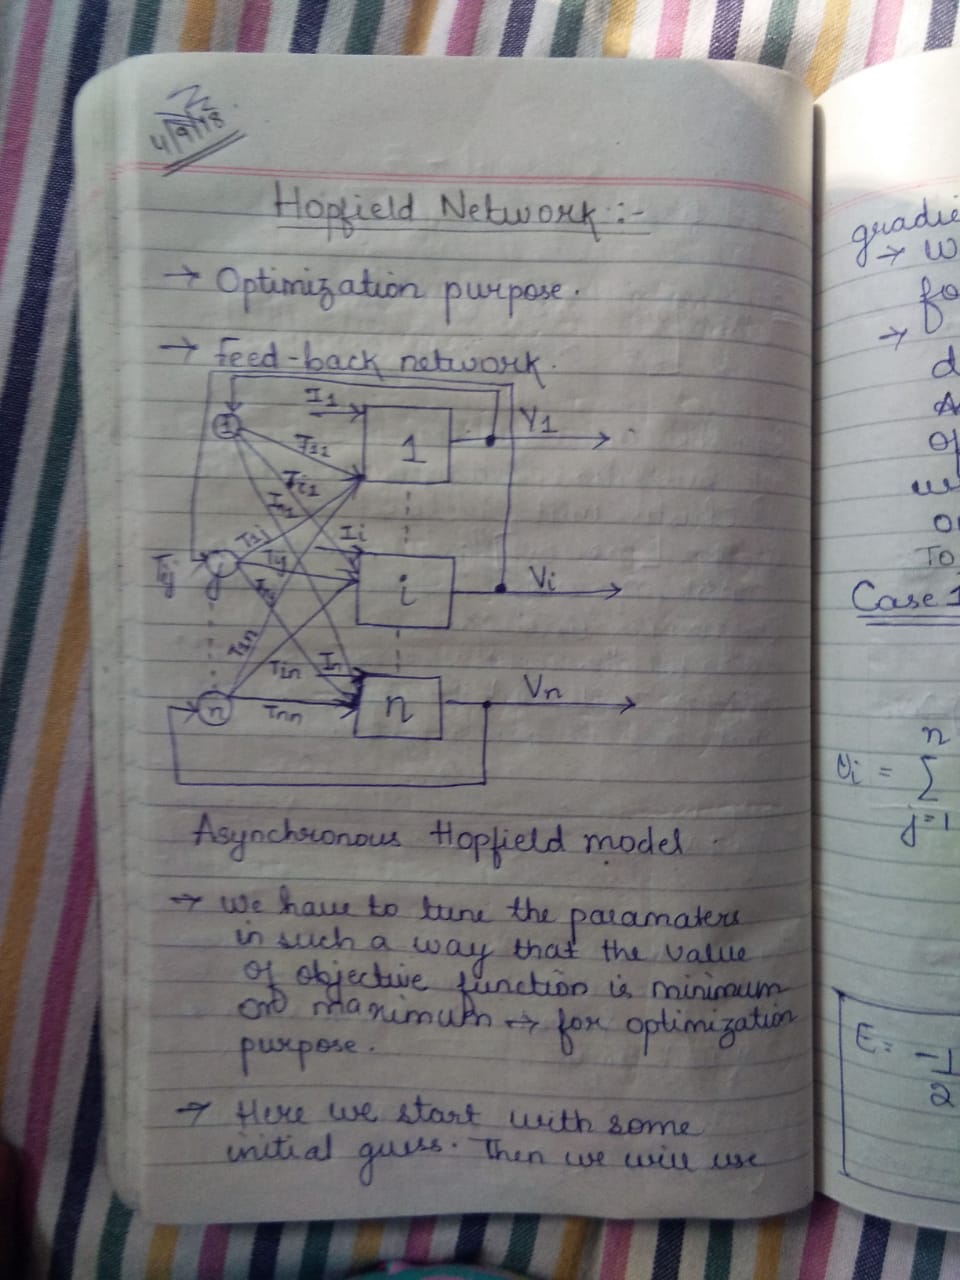 4/9/18
Hopfield Network :-
→ Optimization purpose.
→ Feed-back network.
I1
1
V1
1
T11
Ti1
T1j
Ii
j
Tij
i
Vi
T1n
Tin
In
n
Tnn
n
Vn
Asynchronous Hopfield model.
→ We have to tune the paramaters
in such a way that the value
of objective function is minimum
or maximum → for optimization
purpose.
→ Here we start with some
initial guess. Then we will use
gradie
→ W
fo
→
d
A
of
o
To
Case 1
n
Vi = Σ
j=1
E = -1
2